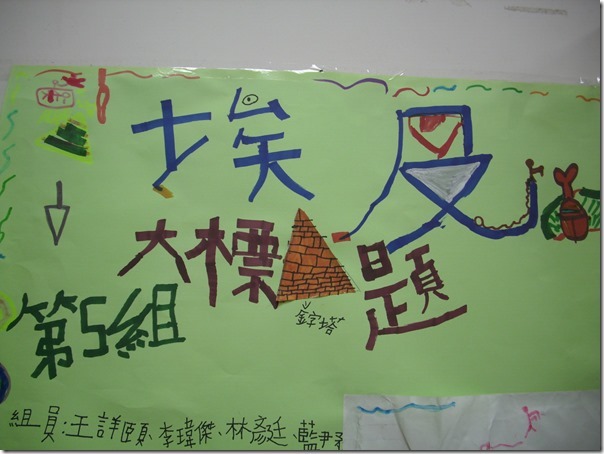 埃及
大標題
金字塔
第5組
組員:王詳頤、李瑋傑、林彥廷、藍尹